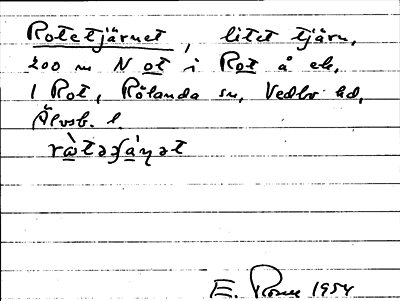 Rotetjärnet, litet tjärn,
200 m N ot i Rot å ek,
1 Rot, Rölanda sn, Vedbo hd,
Älvsb. l.
E. 1954